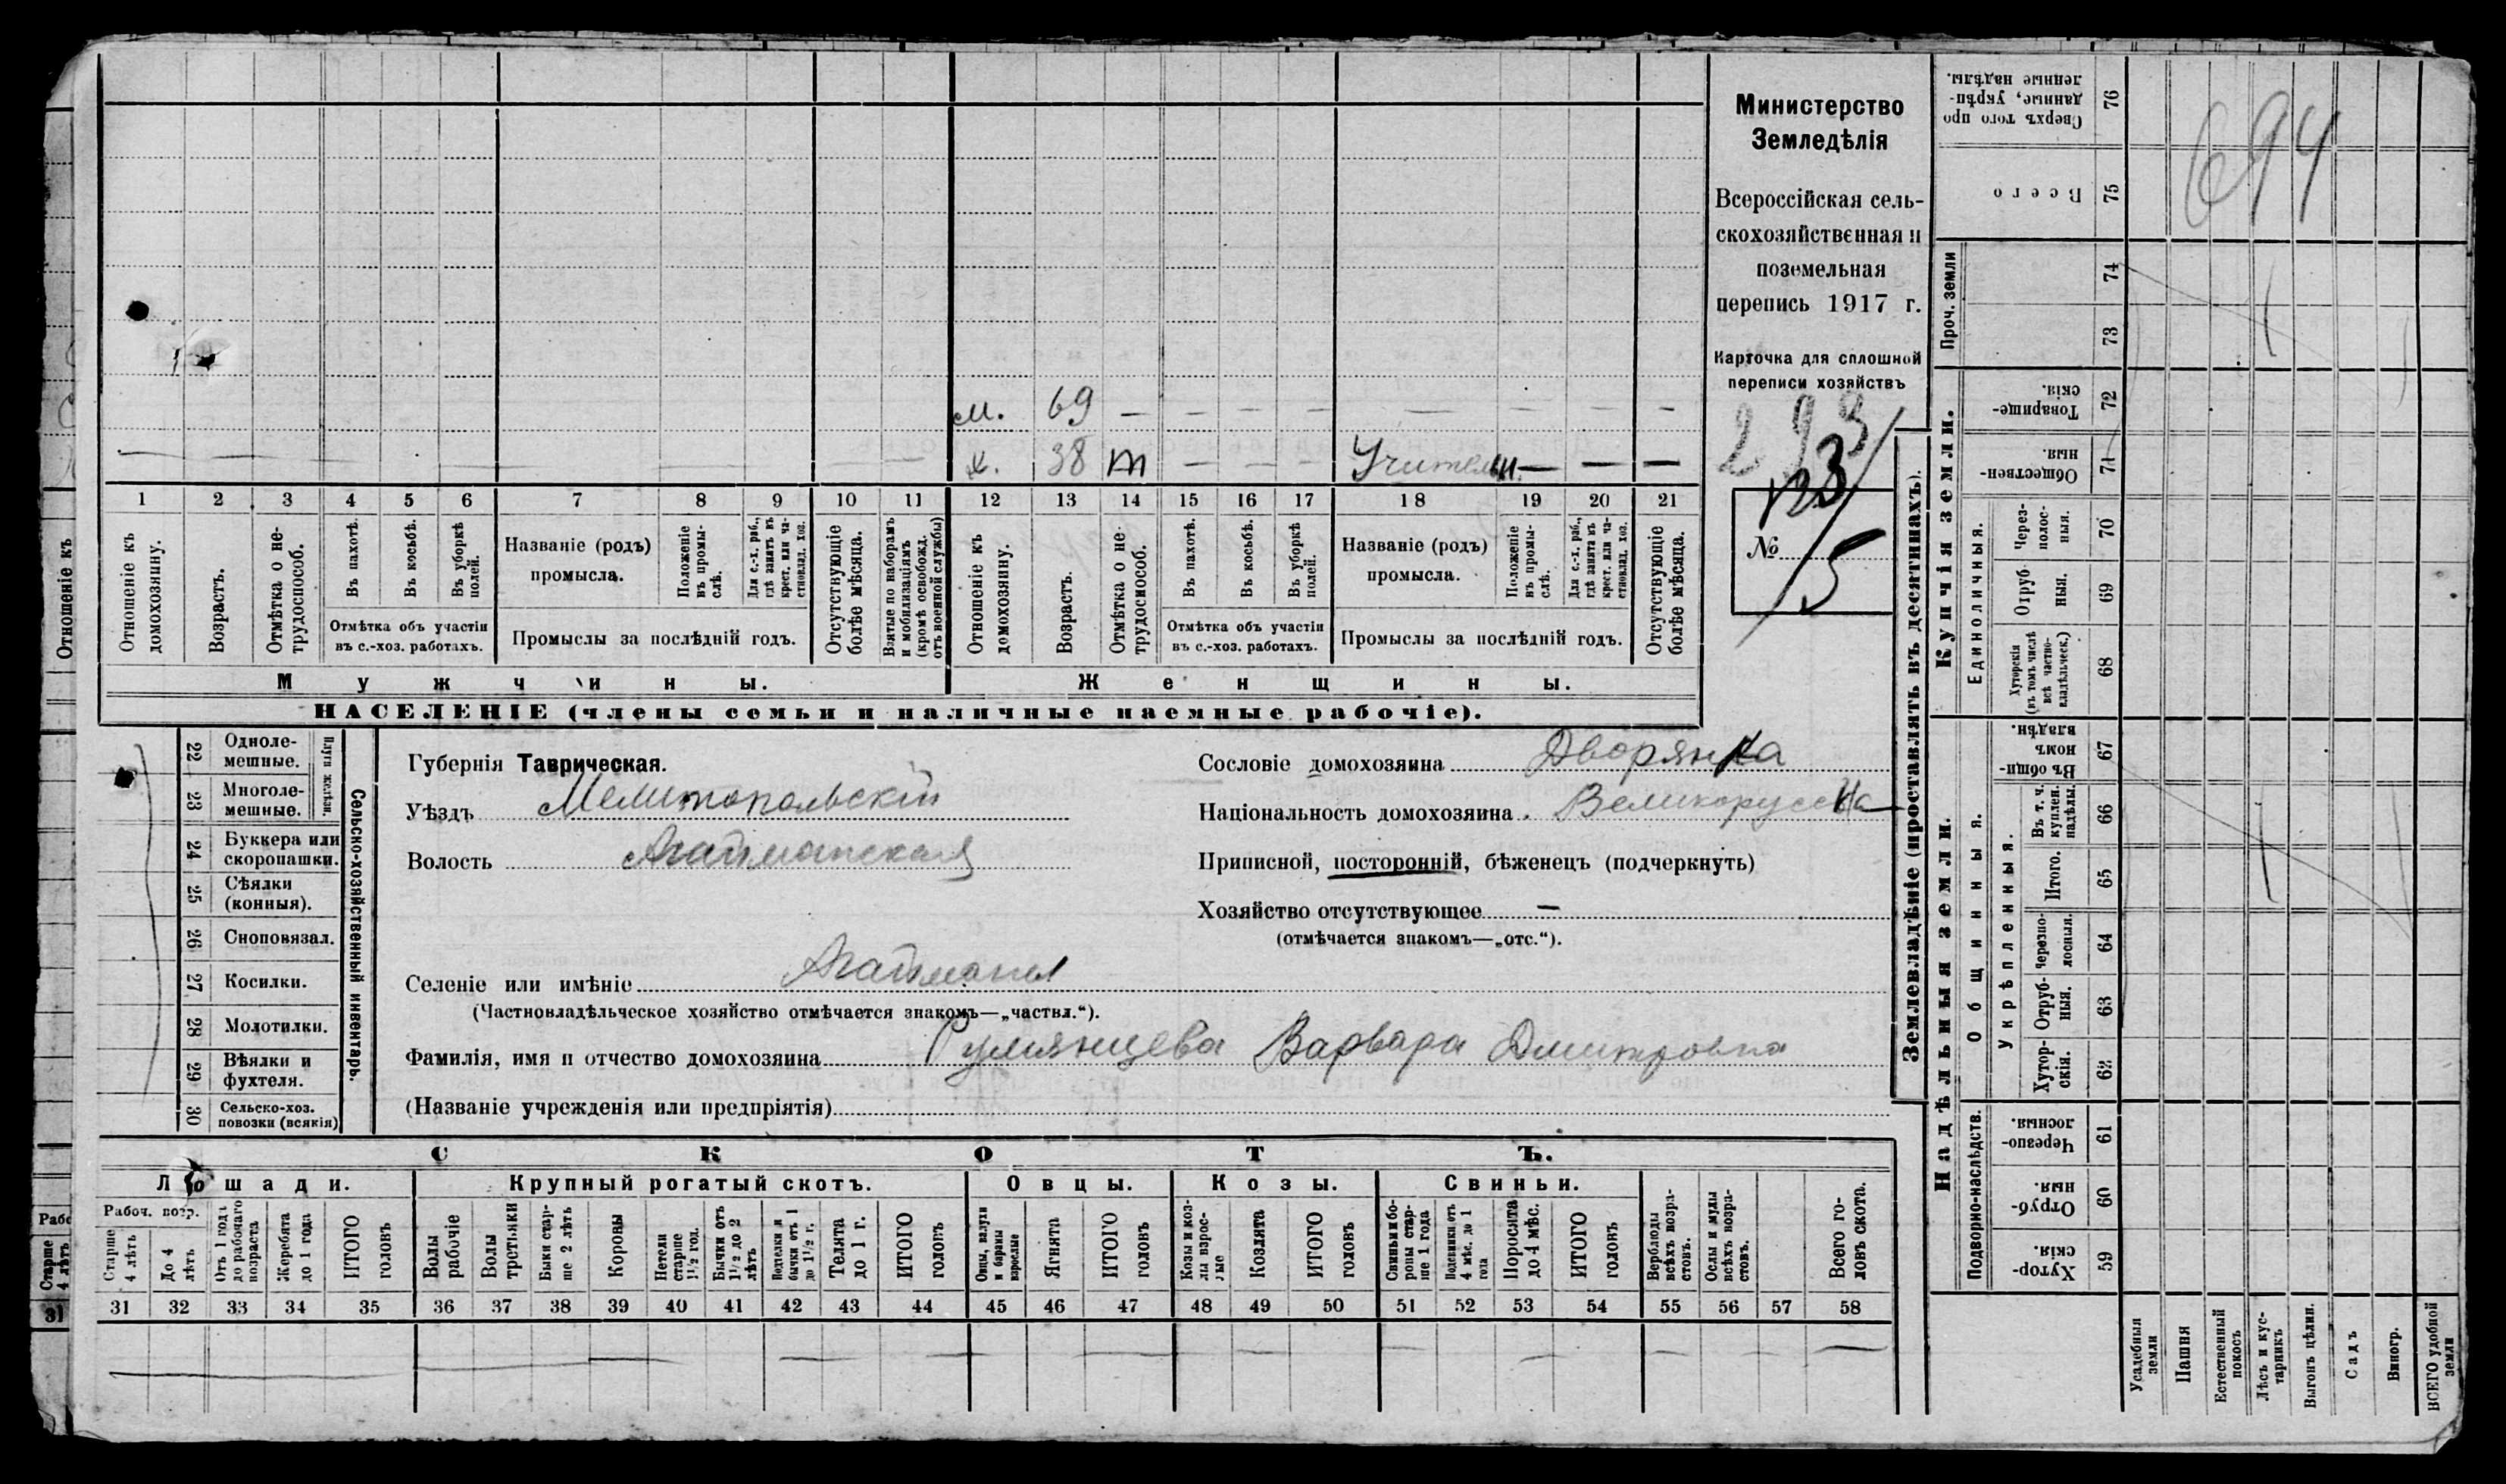 Министерство
Земледѣлія
Всероссійская сель-
скохозяйственная и
поземельная
перепись 1917 г.
Карточка для сплошной
переписи хозяйствъ
293
123/
№ 5
694
м. 69 — — — — — — — —
х. 38 т — — — Учительн. — — —
1 2 3 4 5 6 7 8 9 10 11 12 13 14 15 16 17 18 19 20 21
Отношеніе къ домохозяину.
Возрастъ.
Отмѣтка о не-трудоспособ.
Въ пахотѣ.
Въ косьбѣ.
Въ уборкѣ полей.
Отмѣтка объ участіи
въ с.-хоз. работахъ.
Названіе (родъ)
промысла.
Положеніе въ промы-слѣ.
Для с.-х. раб., гдѣ занятъ въ крест. или ча-стновлад. хоз.
Промыслы за послѣдній годъ.
Отсутствующіе болѣе мѣсяца.
Взятые по наборамъ и мобилизаціямъ (кромѣ освобожд. отъ военной службы)
Отношеніе къ домохозяину.
Возрастъ.
Отмѣтка о не-трудоспособ.
Въ пахотѣ.
Въ косьбѣ.
Въ уборкѣ полей.
Отмѣтка объ участіи
въ с.-хоз. работахъ.
Названіе (родъ)
промысла.
Положеніе въ промы-слѣ.
Для с.-х. раб., гдѣ занята въ крест. или ча-стновлад. хоз.
Промыслы за послѣдній годъ.
Отсутствующіе болѣе мѣсяца.
Мужчины.
Женщины.
НАСЕЛЕНІЕ (члены семьи и наличные наемные рабочіе).
Сельско-хозяйственный инвентарь.
22 Одноле-мешные.
23 Многоле-мешные.
24 Буккера или скоропашки.
25 Сѣялки (конныя).
26 Сноповязал.
27 Косилки.
28 Молотилки.
29 Вѣялки и фухтеля.
30 Сельско-хоз. повозки (всякія)
Губернія Таврическая.
Уѣздъ Мелитопольскій
Волость Агайманская
Сословіе домохозяина Дворянка
Національность домохозяина Великорусска
Приписной, посторонній, бѣженецъ (подчеркнуть)
Хозяйство отсутствующее —
(отмѣчается знакомъ—„отс.“).
Селеніе или имѣніе Агайманы
(Частновладѣльческое хозяйство отмѣчается знакомъ—„частвл.“).
Фамилія, имя и отчество домохозяина Румянцева Варвара Дмитровна
(Названіе учрежденія или предпріятія)
СКОТЪ.
Лошади.
Крупный рогатый скотъ.
Овцы.
Козы.
Свиньи.
Рабоч. возр.
Старше 4 лѣтъ
До 4 лѣтъ
Отъ 1 года до рабочаго возраста
Жеребята до 1 года
ИТОГО головъ
Волы рабочіе
Волы третьяки
Быки стар-ше 2 лѣтъ
Коровы
Нетели старше 1½ год.
Бычки отъ 1½ до 2 лѣтъ
Подтелки и бычки отъ 1 до 1½ г.
Телята до 1 г.
ИТОГО головъ
Овцы, валухи и бараны взрослые
Ягнята
ИТОГО головъ
Козы и коз-лы взрос-лые
Козлята
ИТОГО головъ
Свиньи и бо-ровы стар-ше 1 года
Подсвинки отъ 4 мѣс. до 1 года
Поросята до 4 мѣс.
ИТОГО головъ
Верблюды всѣхъ возра-стовъ.
Ослы и мулы всѣхъ возра-стовъ.
Всего го-ловъ скота.
31 32 33 34 35 36 37 38 39 40 41 42 43 44 45 46 47 48 49 50 51 52 53 54 55 56 57 58
Землевладѣніе (проставлять въ десятинахъ).
Купчія земли.
Надѣльныя земли.
Проч. земли
Единоличныя.
Общинныя.
Укрѣпленныя.
Подворно-наслѣдств.
Сверхъ того про данные, укрѣп-ленные надѣлы. 76
Всего 75
74
73
Товарище-скія. 72
Обществен-ныя. 71
Через-полос-ныя. 70
Отруб ныя. 69
Хуторскія (въ томъ числѣ всѣ частно-владѣльческ.) 68
Въ общи-номъ владѣн. 67
Въ т. ч. куплен. надѣлы. 66
Итого. 65
Черезпо-лосныя. 64
Отруб-ныя. 63
Хутор-скія. 62
Черезпо-лосныя. 61
Отруб-ныя. 60
Хутор-скія. 59
Усадебныя земли
Пашня
Естественный покосъ
Лѣсъ и кус-тарникъ
Выгонъ цѣлин.
Садъ
Виногр.
ВСЕГО удобной земли
Отношеніе къ
Старше 4 лѣтъ
31